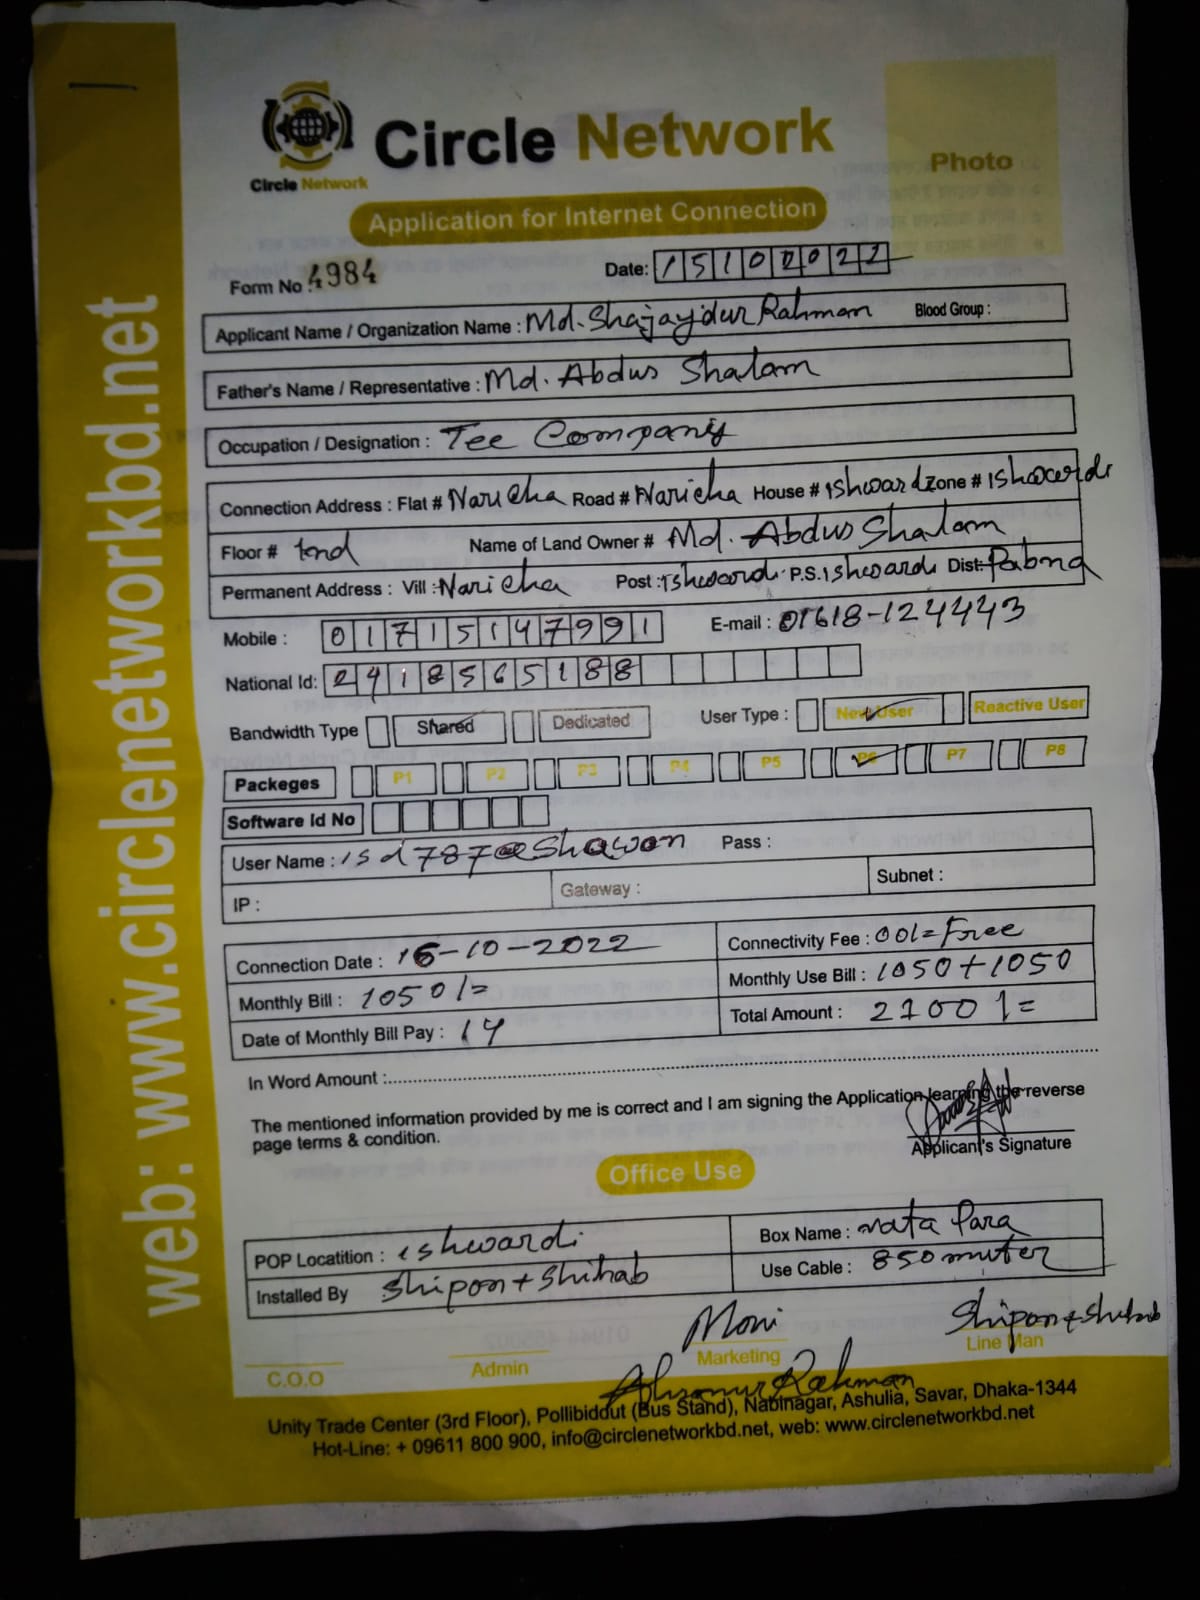 Circle Network
Circle Network
Photo
Application for Internet Connection
Form No : 4984
Date: 15102022
Applicant Name / Organization Name : Md. Shajaydur Rahman Blood Group :
Father's Name / Representative : Md. Abdus Shalam
Occupation / Designation : Tee Company
Connection Address : Flat # Naricha Road # Naricha House # Ishward Zone # Ishwardi
Floor # tnd Name of Land Owner # Md. Abdus Shalam
Permanent Address : Vill : Naricha Post : Ishwardi P.S. Ishwardi Dist: Pabna
Mobile : 01715147991 E-mail : 01618-124443
National Id: 2418565188
Bandwidth Type Shared Dedicated User Type : New User Reactive User
Packeges P1 P2 P3 P4 P5 P6 P7 P8
Software Id No
User Name : isd787@shawon Pass :
IP : Gateway : Subnet :
Connection Date : 16-10-2022 Connectivity Fee : 00/= Free
Monthly Bill : 1050/= Monthly Use Bill : 1050+1050
Date of Monthly Bill Pay : 14 Total Amount : 2100/=
In Word Amount :
The mentioned information provided by me is correct and I am signing the Application learning the reverse
page terms & condition.
Applicant's Signature
Office Use
POP Locatition : ishwardi Box Name : Mata Para
Installed By Shipon + Shihab Use Cable : 850 muter
Moni Shipon + Shihab
C.O.O Admin Marketing Line Man
Ahsanur Rahman
Unity Trade Center (3rd Floor), Pollibiddut (Bus Stand), Nabinagar, Ashulia, Savar, Dhaka-1344
Hot-Line: + 09611 800 900, info@circlenetworkbd.net, web: www.circlenetworkbd.net
web: www.circlenetworkbd.net